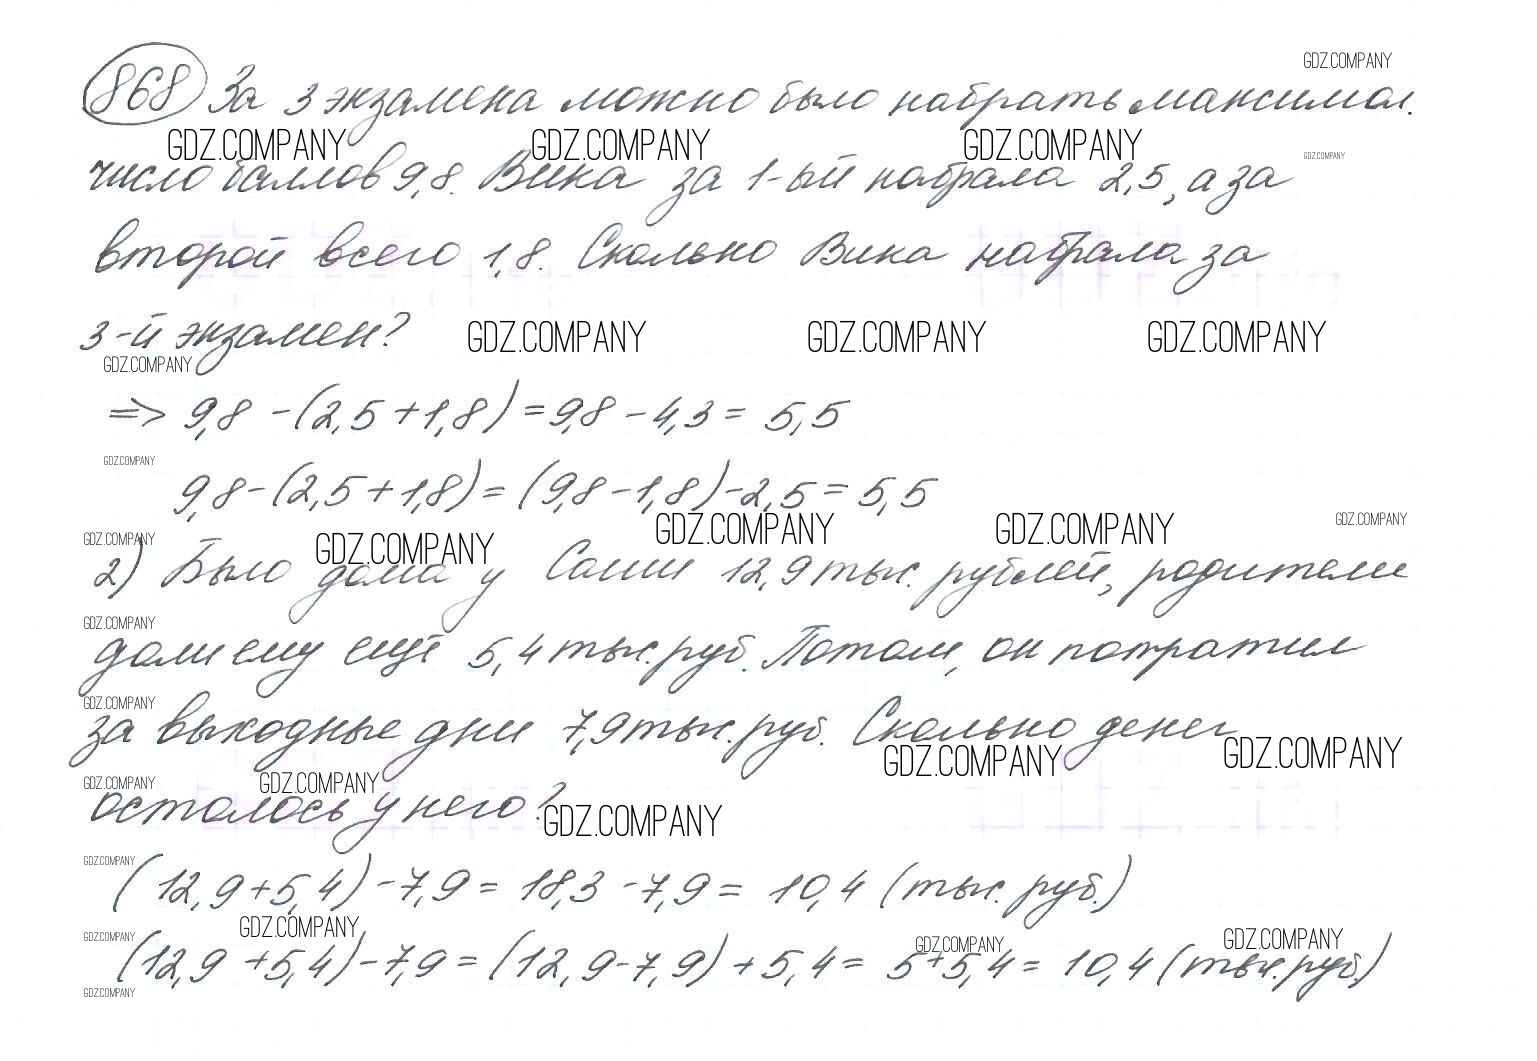 GDZ.COMPANY
868 За 3 экзамена можно было набрать максимал.
GDZ.COMPANY GDZ.COMPANY GDZ.COMPANY GDZ.COMPANY
число баллов 9,8. Вика за 1-ый набрала 2,5, а за
второй всего 1,8. Сколько Вика набрала за
3-й экзамен?
GDZ.COMPANY GDZ.COMPANY GDZ.COMPANY
GDZ.COMPANY
=> 9,8 - (2,5 + 1,8) = 9,8 - 4,3 = 5,5
GDZ.COMPANY
9,8 - (2,5 + 1,8) = (9,8 - 1,8) - 2,5 = 5,5
GDZ.COMPANY GDZ.COMPANY GDZ.COMPANY
GDZ.COMPANY GDZ.COMPANY
2) Было дома у Саши 12,9 тыс. рублей, родители
GDZ.COMPANY
дали ему ещё 5,4 тыс. руб. Потом, он потратил
GDZ.COMPANY
за выходные дни 7,9 тыс. руб. Сколько денег
GDZ.COMPANY GDZ.COMPANY
GDZ.COMPANY GDZ.COMPANY
осталось у него?
GDZ.COMPANY
GDZ.COMPANY
(12,9 + 5,4) - 7,9 = 18,3 - 7,9 = 10,4 (тыс. руб.)
GDZ.COMPANY
GDZ.COMPANY GDZ.COMPANY GDZ.COMPANY
(12,9 + 5,4) - 7,9 = (12,9 - 7,9) + 5,4 = 5 + 5,4 = 10,4 (тыс. руб.)
GDZ.COMPANY